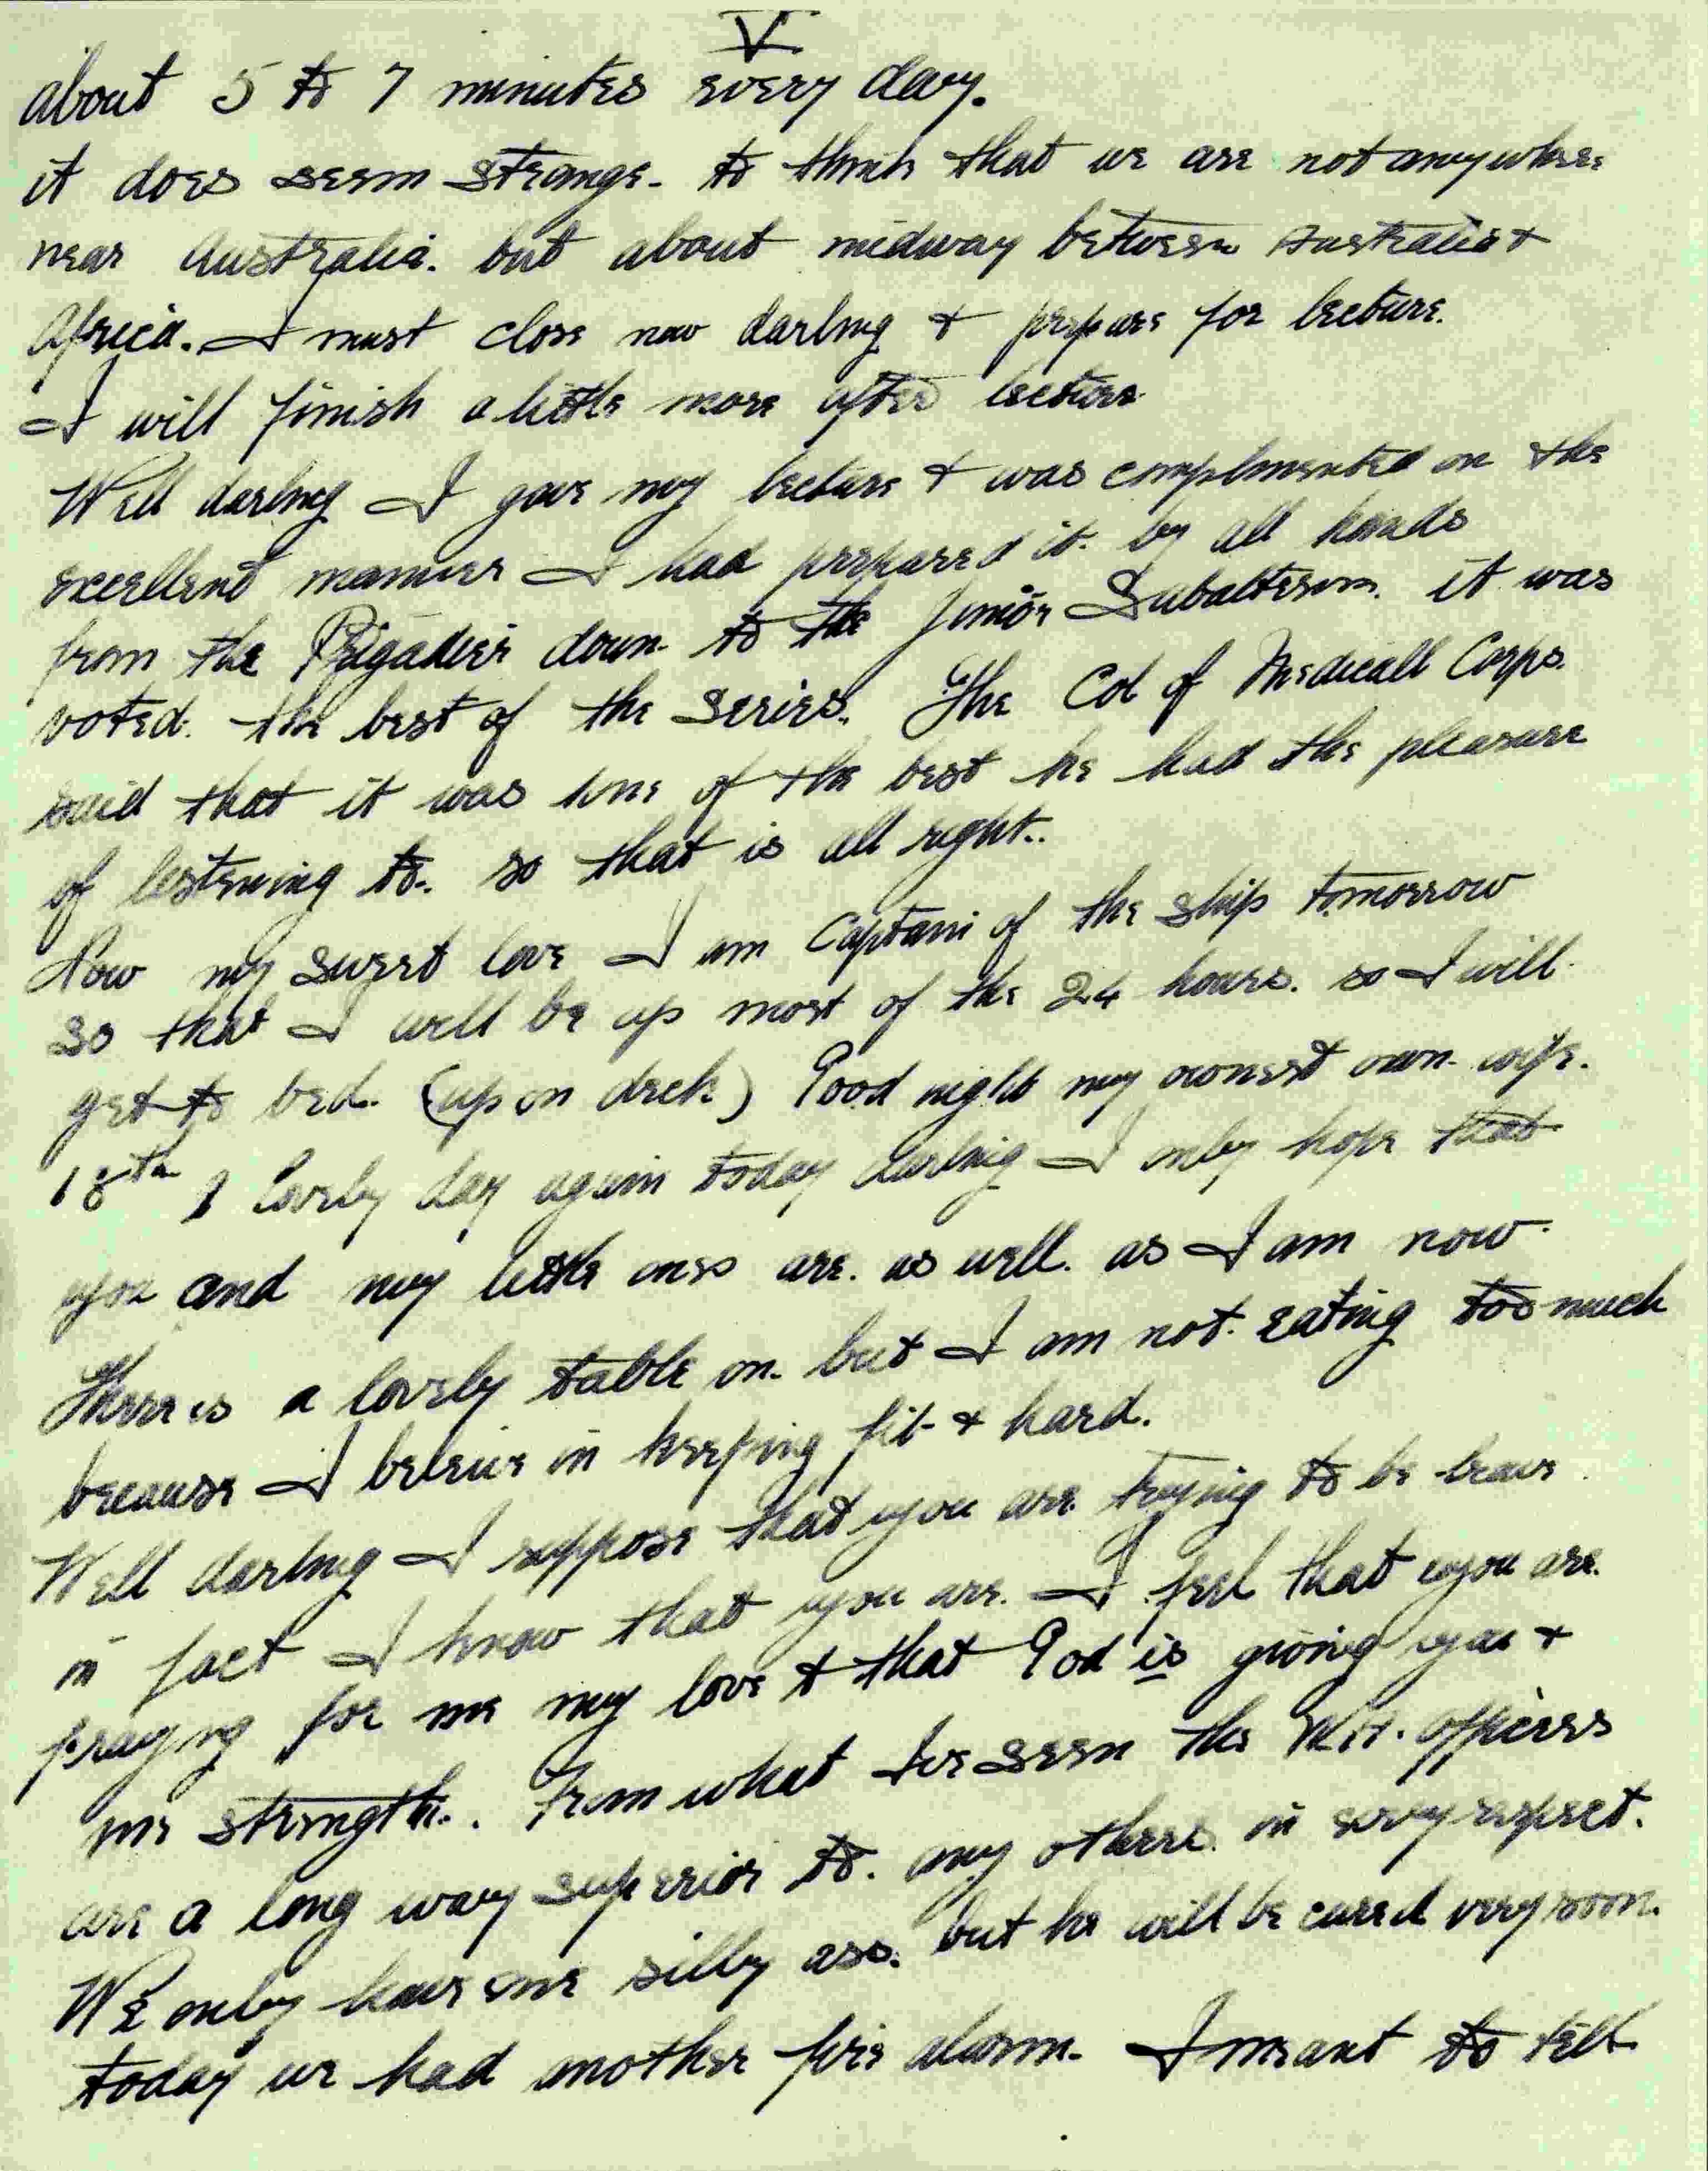 V
about 5 to 7 minutes every day.
it does seem strange. to think that we are not anywhere
near Australia. but about midway between Australia +
Africa. I must close now darling + prepare for lecture.
I will finish a little more after lecture
Well darling I gave my lecture + was complimented on the
excellent manner I had prepared it. by all hands
from the Brigadier down. to the Junior Subaltern. it was
voted. the best of the series. The Col of Medicall Corps.
said that it was one of the best he had the pleasure
of lestening to. so that is all right..
Now my sweet love I am Captain of the ship tomorrow
so that I will be up most of the 24 hours. so I will
get to bed. (up on deck) Good night my ownest own. wife.
18th A lovely day again today darling I only hope that
you and my little ones are. as well. as I am now.
There is a lovely table on. but I am not. eating too much
because I beleive in keeping fit + hard.
Well darling I suppose that you are trying to be brave
in fact I know that you are. I feel that you are.
praying for me my love + that God is giving you +
me strength.. From what Ive seen the officers
are a long way superior to. any others. in every respect.
We only have one silly ass. but he will be cured very soon.
today we had another fire alarm. I meant to tell